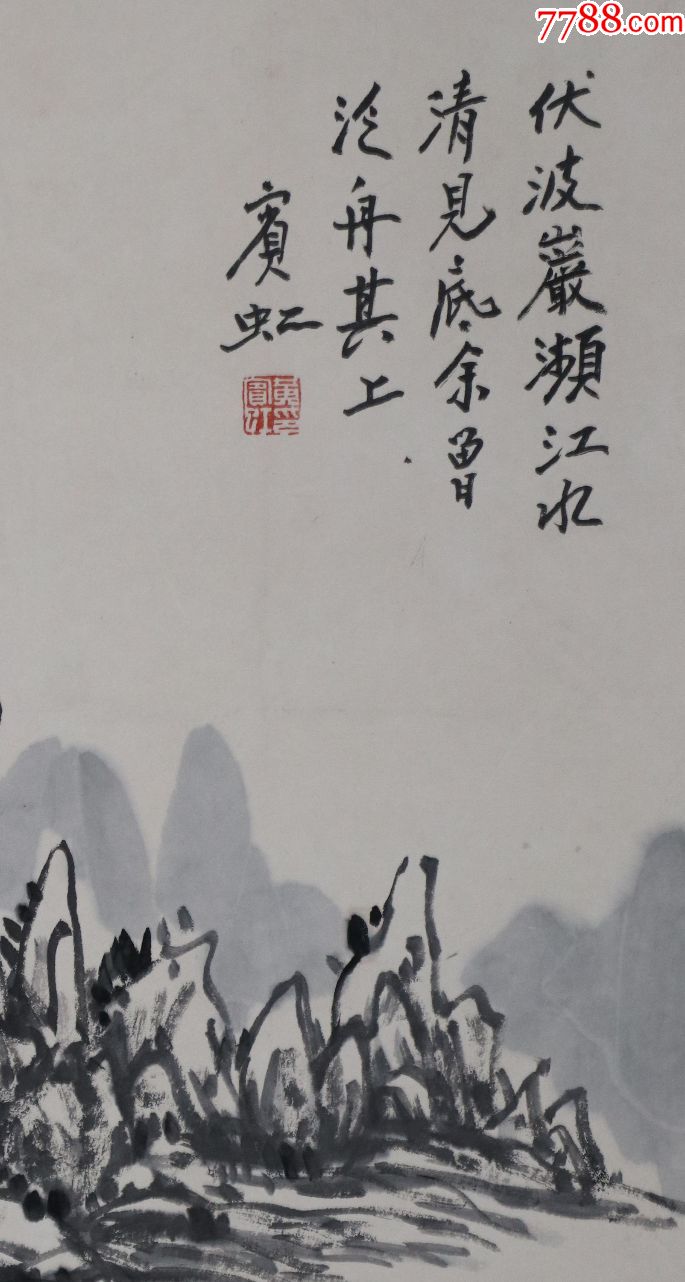 7788.com
伏波巖瀕江水
清見底余曾
泛舟其上
賓虹
黃賓虹